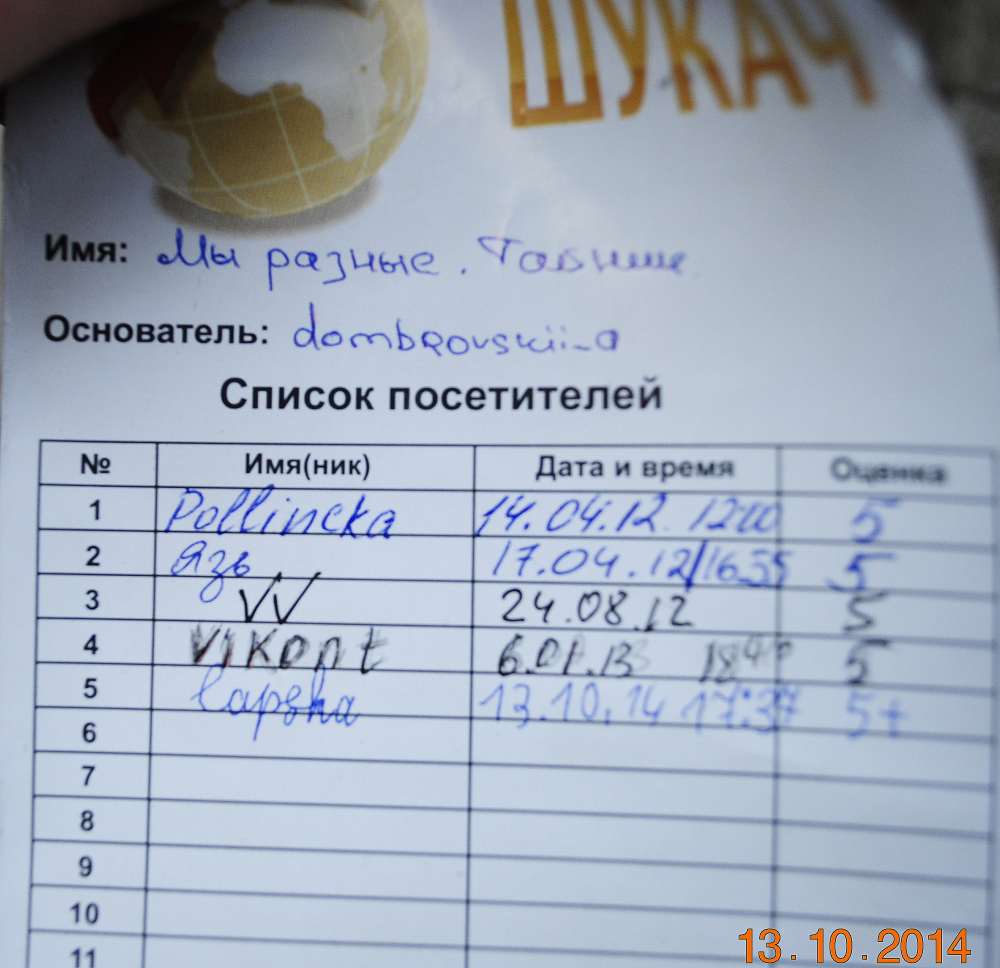 ШУКАЧ
Имя: Мы разные.
Основатель: dombrovskii_a
Список посетителей
№ Имя(ник) Дата и время Оценка
1 Pollincka 14.04.12 1200 5
2 Язь 17.04.12/1655 5
3 VV 24.08.12 5
4 Vikont 6.01.13 5
5 lapsha 13.10.14 17:37 5+
6
7
8
9
10
11
13.10.2014